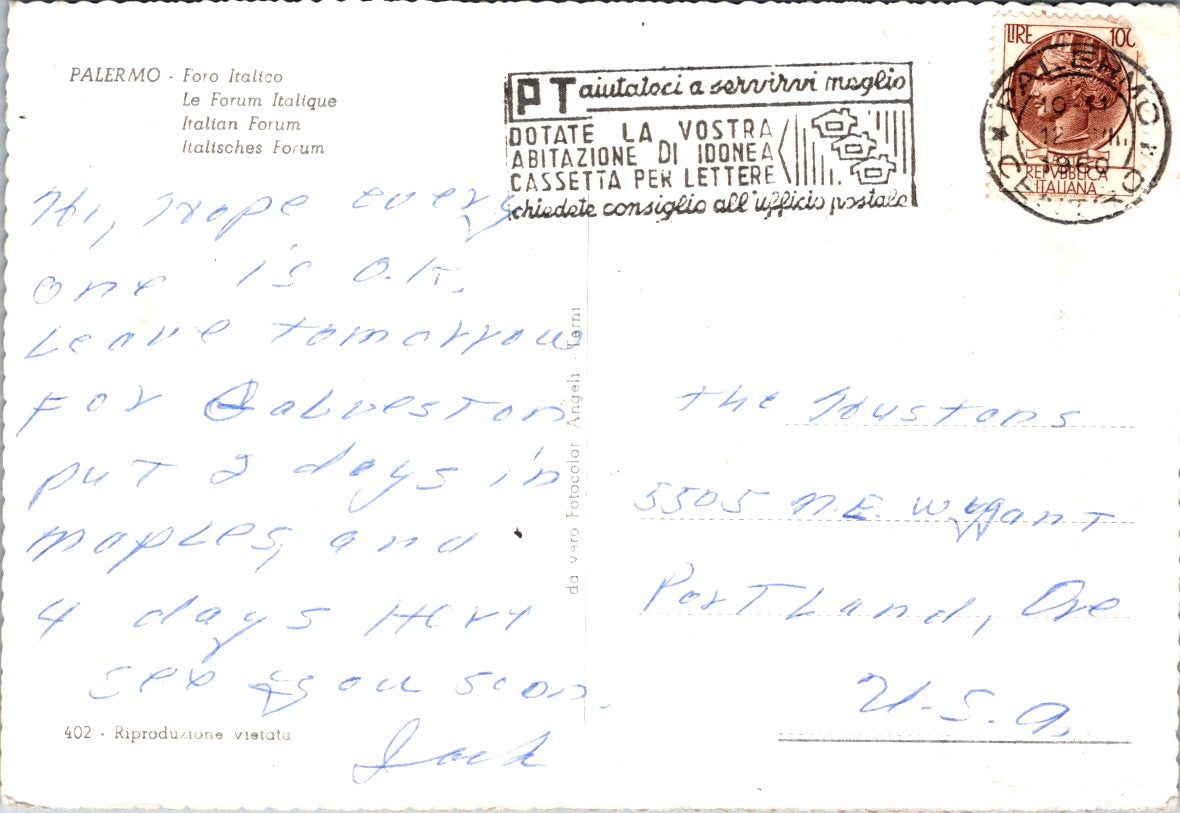 PALERMO - Foro Italico
Le Forum Italique
Italian Forum
Italisches Forum
PT aiutatoci a servirvi meglio
DOTATE LA VOSTRA
ABITAZIONE DI IDONEA
CASSETTA PER LETTERE
chiedete consiglio all'ufficio postale
LIRE 100
REPVBBLICA
ITALIANA
PALERMO
12
1960
CENTRO
Hi, Hope every
one is O.K.
Leave tomorrow
For Galveston
put 2 days in
Naples, and
4 days Here
see you soon.
Jack
da vero Fotocolor Angeli - Terni
the Hustons
5505 N.E. Wygant
Portland, Ore
U.S.A.
402 - Riproduzione vietata